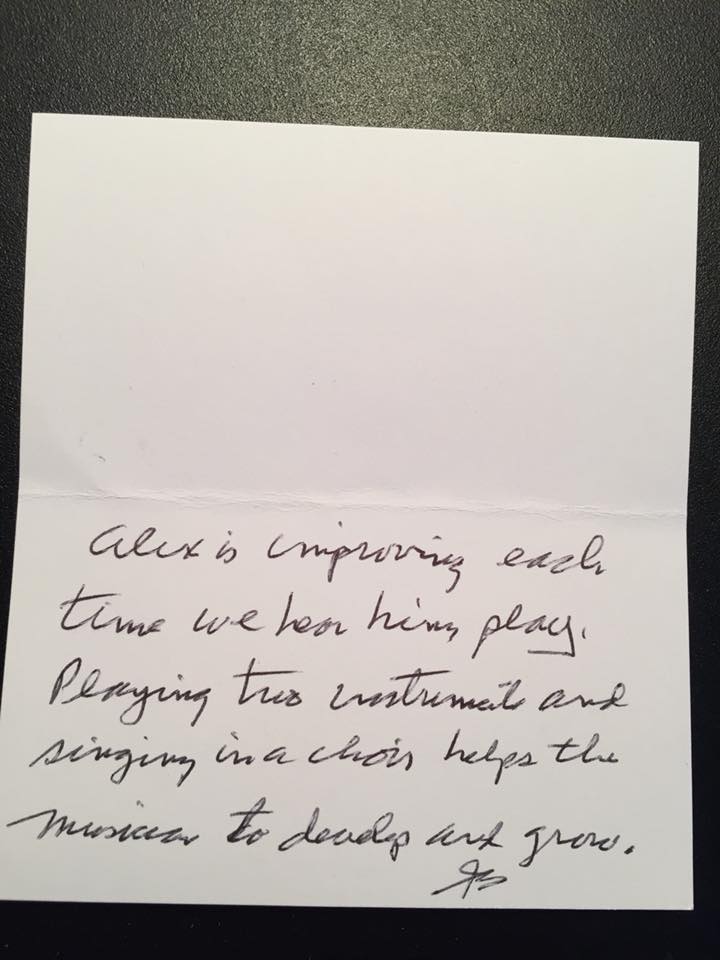 Alex is improving each
time we hear him play.
Playing two instruments and
singing in a choir helps the
musician to develop and grow.